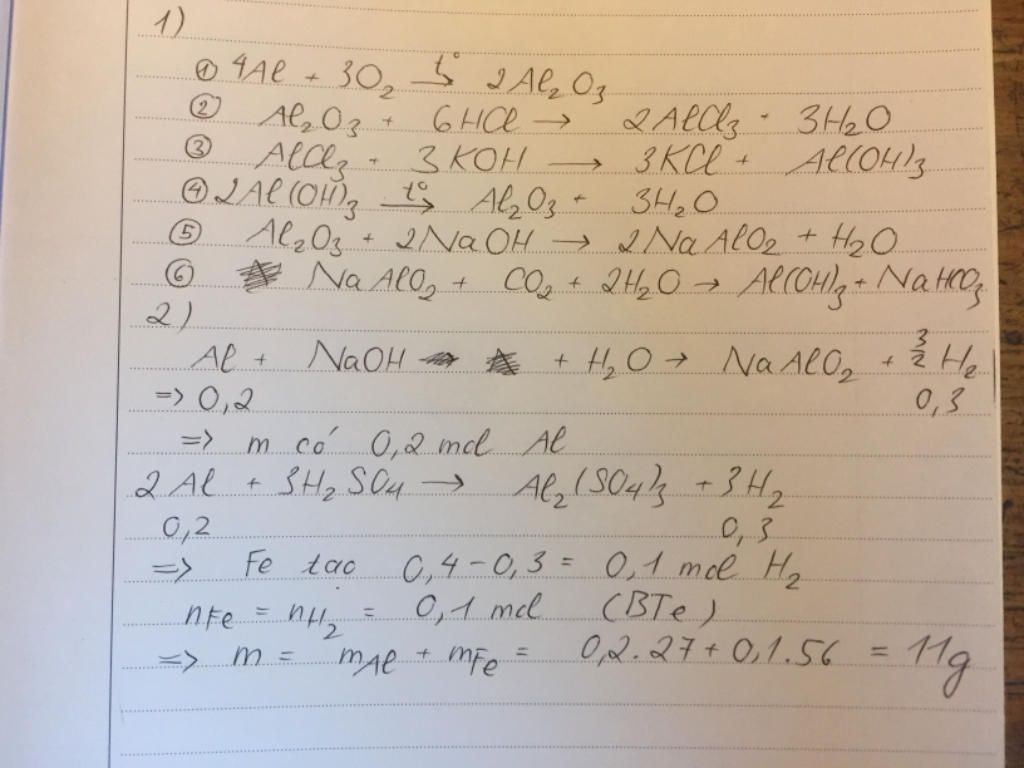 1)
① 4Al + 3O₂ →(t°) 2Al₂O₃
② Al₂O₃ + 6HCl → 2AlCl₃ + 3H₂O
③ AlCl₃ + 3KOH → 3KCl + Al(OH)₃
④ 2Al(OH)₃ →(t°) Al₂O₃ + 3H₂O
⑤ Al₂O₃ + 2NaOH → 2NaAlO₂ + H₂O
⑥ NaAlO₂ + CO₂ + 2H₂O → Al(OH)₃ + NaHCO₃
2)
Al + NaOH + H₂O → NaAlO₂ + 3/2 H₂
=> 0,2 0,3
=> m có 0,2 mol Al
2Al + 3H₂SO₄ → Al₂(SO₄)₃ + 3H₂
0,2 0,3
=> Fe tạo 0,4 - 0,3 = 0,1 mol H₂
nFe = nH₂ = 0,1 mol (BTe)
=> m = mAl + mFe = 0,2.27 + 0,1.56 = 11g